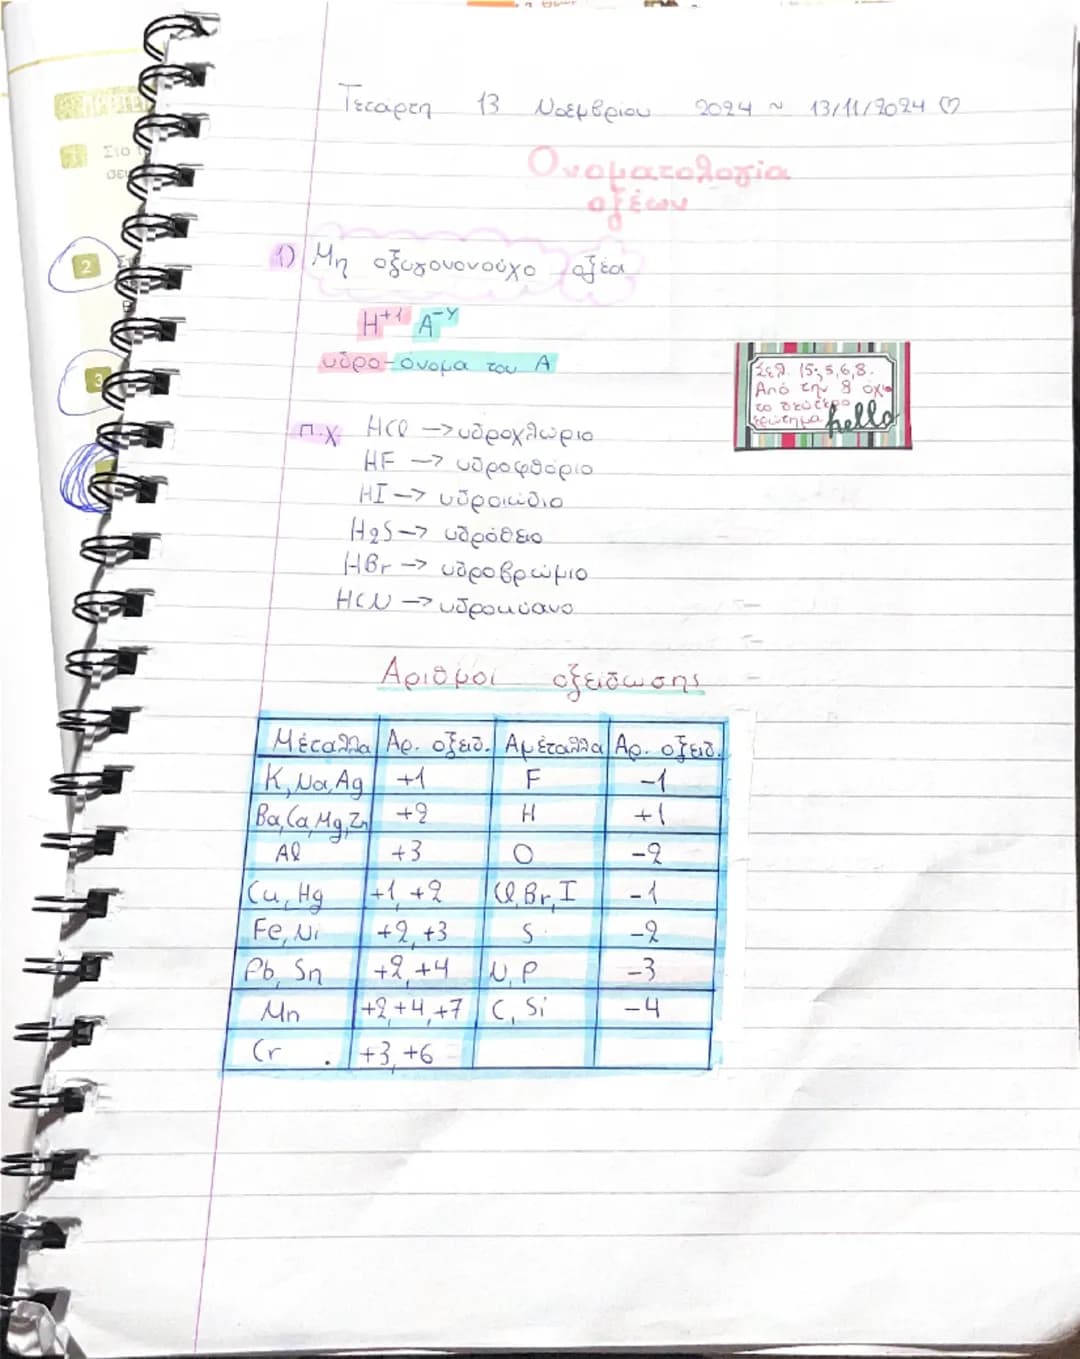 Τετάρτη 13 Νοεμβρίου 2024 ~ 13/11/2024 ♡
Ονοματολογία
οξέων
1) Μη οξυγονονούχο οξέα
H+1 A-y
υδρο-όνομα του A
Σελ. 15: 5,6,8.
Από την 8 όχι
το δεύτερο
ερώτημα
hello
π.χ. HCl → υδροχλώριο
HF → υδροφθόριο
HI → υδροιώδιο
H2S → υδρόθειο
HBr → υδροβρώμιο
HCN → υδροκυάνο
Αριθμοί οξείδωσης
Μέταλλα Αρ. οξειδ. Αμέταλλα Αρ. οξειδ.
K, Na, Ag +1 F -1
Ba, Ca, Mg, Zn +2 H +1
Al +3 O -2
Cu, Hg +1, +2 Cl, Br, I -1
Fe, Ni +2, +3 S -2
Pb, Sn +2, +4 N, P -3
Mn +2, +4, +7 C, Si -4
Cr +3, +6
2
3